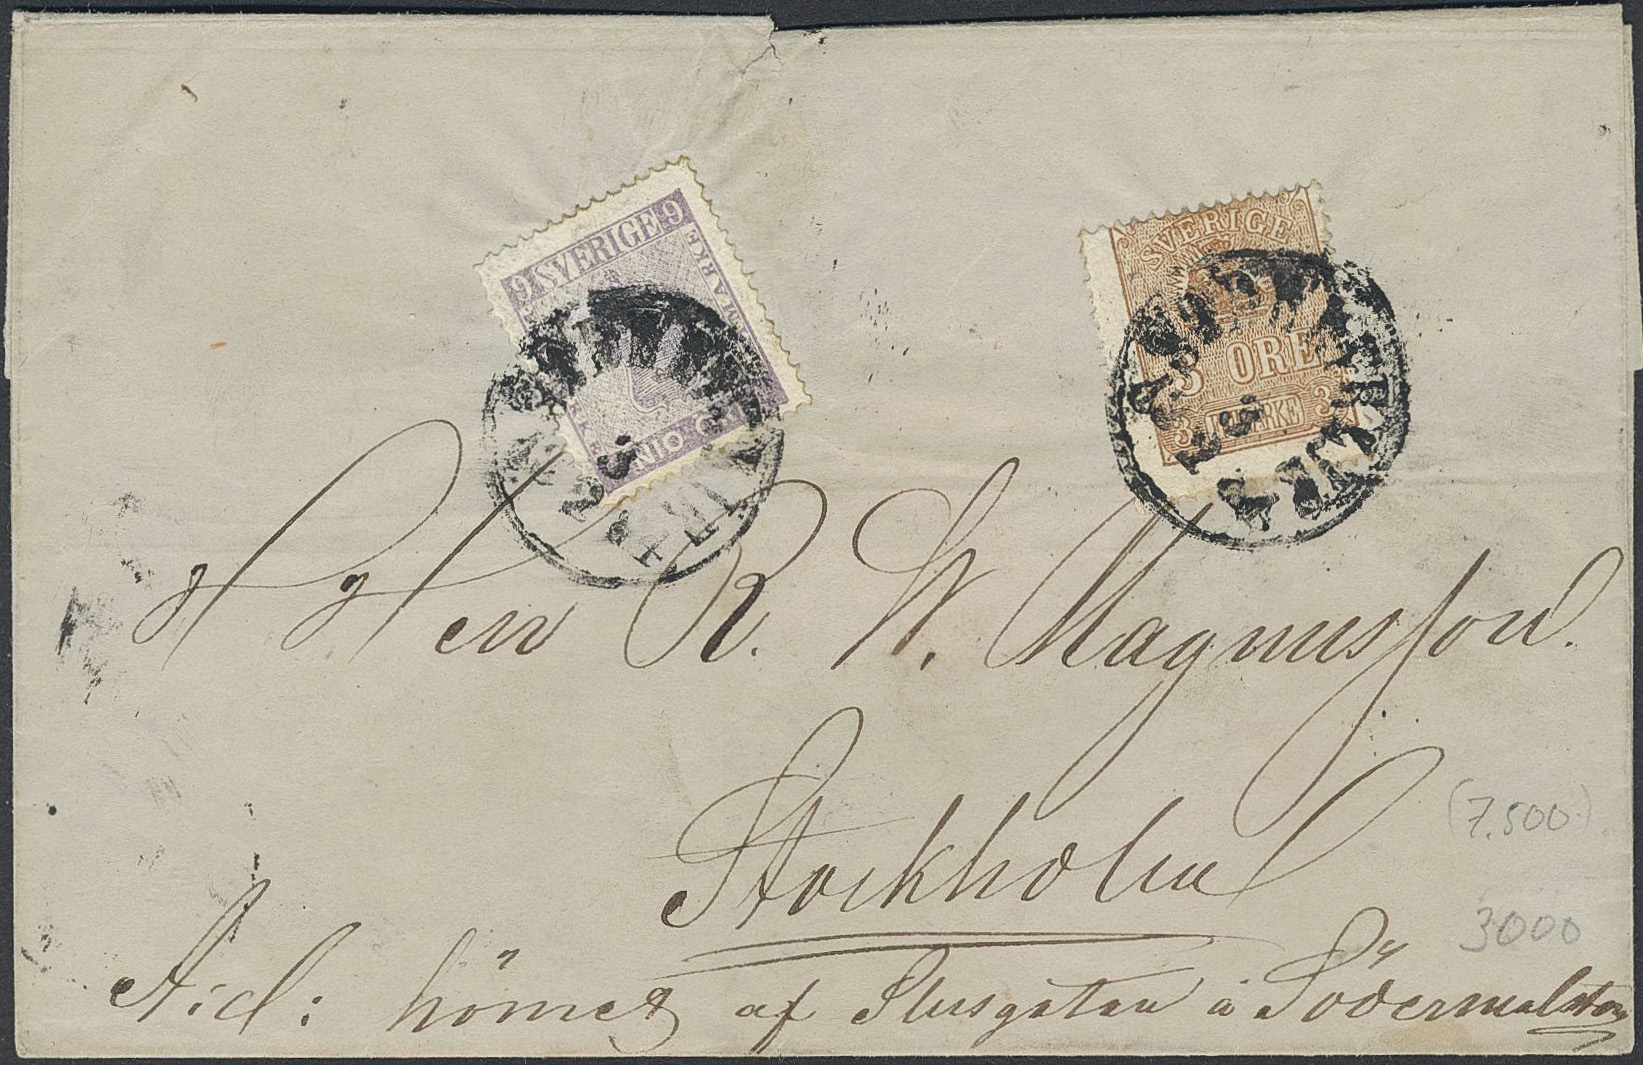 9 SVERIGE 9
FRIMÄRKE
NIO ÖRE
SVERIGE
3 ÖRE
3 FRIMÄRKE 3
H Herr R. W. Magnusson.
Stockholm
Aid: hörnet af Slusgatan å Södermalmstorg
(7.500)
3000